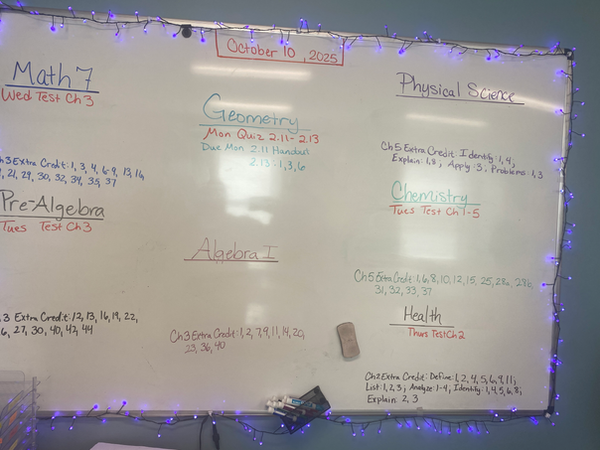 October 10, 2025
Math 7
Wed Test Ch 3
Ch3 Extra Credit: 1, 3, 4, 6-9, 13, 16,
21, 29, 30, 32, 34, 35, 37
Pre-Algebra
Tues Test Ch 3
.3 Extra Credit: 12, 13, 16, 19, 22,
27, 30, 40, 42, 44
Geometry
Mon Quiz 2.11-2.13
Due Mon 2.11 Handout
2.13: 1, 3, 6
Algebra I
Ch 3 Extra Credit: 1, 2, 7, 9, 11, 14, 20,
36, 40
Physical Science
Ch 5 Extra Credit Identify: 1, 4;
Explain: 1, 8; Apply: 3, Problems: 1, 3
Chemistry
Tues Test Ch 1-5
Ch 5 Extra Credit: 1, 6, 8, 10, 12, 15, 25, 28a, 28b,
31, 32, 33, 37
Health
Thurs Test Ch 2
Ch 2 Extra Credit: Define: 1, 2, 4, 5, 6, 9, 11;
List: 1, 2, 3; Analyze: 1-4; Identify: 1, 4, 5, 6, 8;
Explain: 2, 3